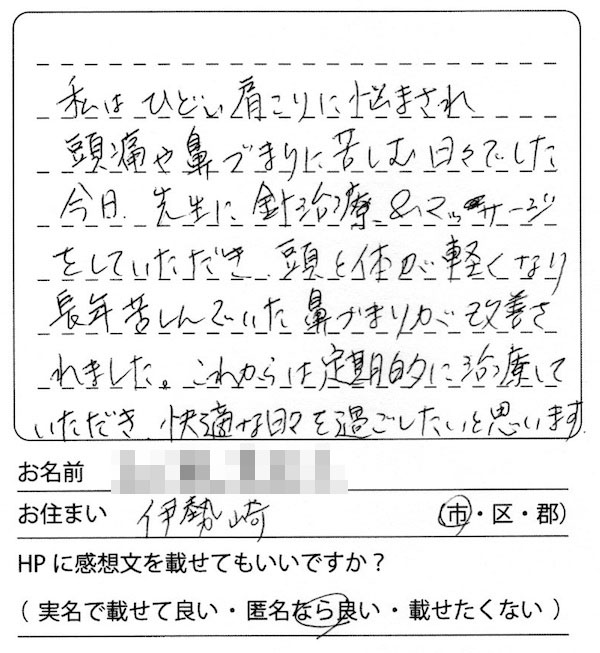 私はひどい肩こりに悩まされ
頭痛や鼻づまりに苦しむ日々でした
今日、先生に針治療&マッサージ
をしていただき、頭と体が軽くなり
長年苦しんでいた鼻づまりが改善さ
れました。これからは定期的に治療して
いただき、快適な日々を過ごしたいと思います
お名前
お住まい 伊勢崎 (市・区・郡)
HPに感想文を載せてもいいですか?
( 実名で載せて良い・匿名なら良い・載せたくない )